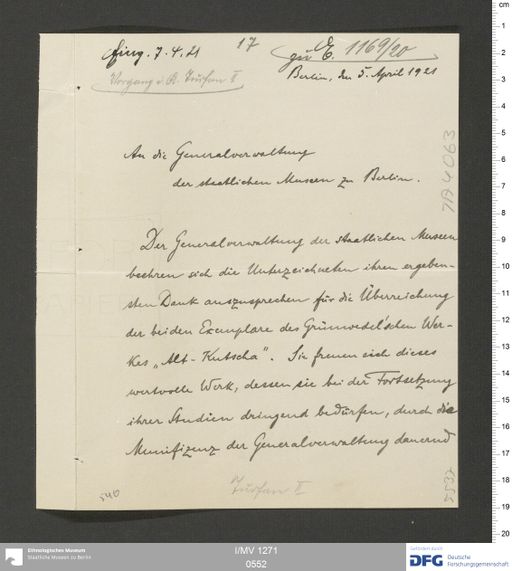 Eing. 7.4.21
17
zu E. 1169/20
Vorgang s. A. Turfan II
Berlin, den 5. April 1921
An die Generalverwaltung
der staatlichen Museen zu Berlin.
Der Generalverwaltung der staatlichen Museen
beehren sich die Unterzeichneten ihren ergeben-
sten Dank auszusprechen für die Überreichung
der beiden Exemplare des Grünwedel'schen Wer-
kes „Alt-Kutscha". Sie freuen sich dieses
wertvolle Werk, dessen sie bei der Fortsetzung
ihrer Studien dringend bedürfen, durch die
Munifizenz der Generalverwaltung dauernd
Turfan II
540
Ethnologisches Museum
Staatliche Museen zu Berlin
I/MV 1271
0552
Gefördert durch
DFG
Deutsche
Forschungsgemeinschaft
cm
0
1
2
3
4
5
6
7
8
9
10
11
12
13
14
15
16
17
18
19
20